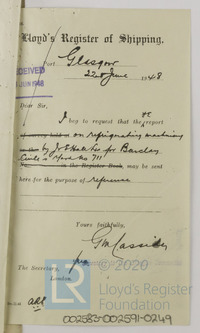 Lloyd's Register of Shipping.
Port Glasgow
22nd June 1948
RECEIVED
JUN 1948
Dear Sir,
I beg to request that the report
on refrigerating machinery
by J & E Hall Ltd for Barclay
Curle's Yard No 711
in the Register Book, may be sent
here for the purpose of reference
Yours faithfully,
The Secretary,
London.
© 2020
LR
Lloyd's Register
Foundation
002583-002591-0249